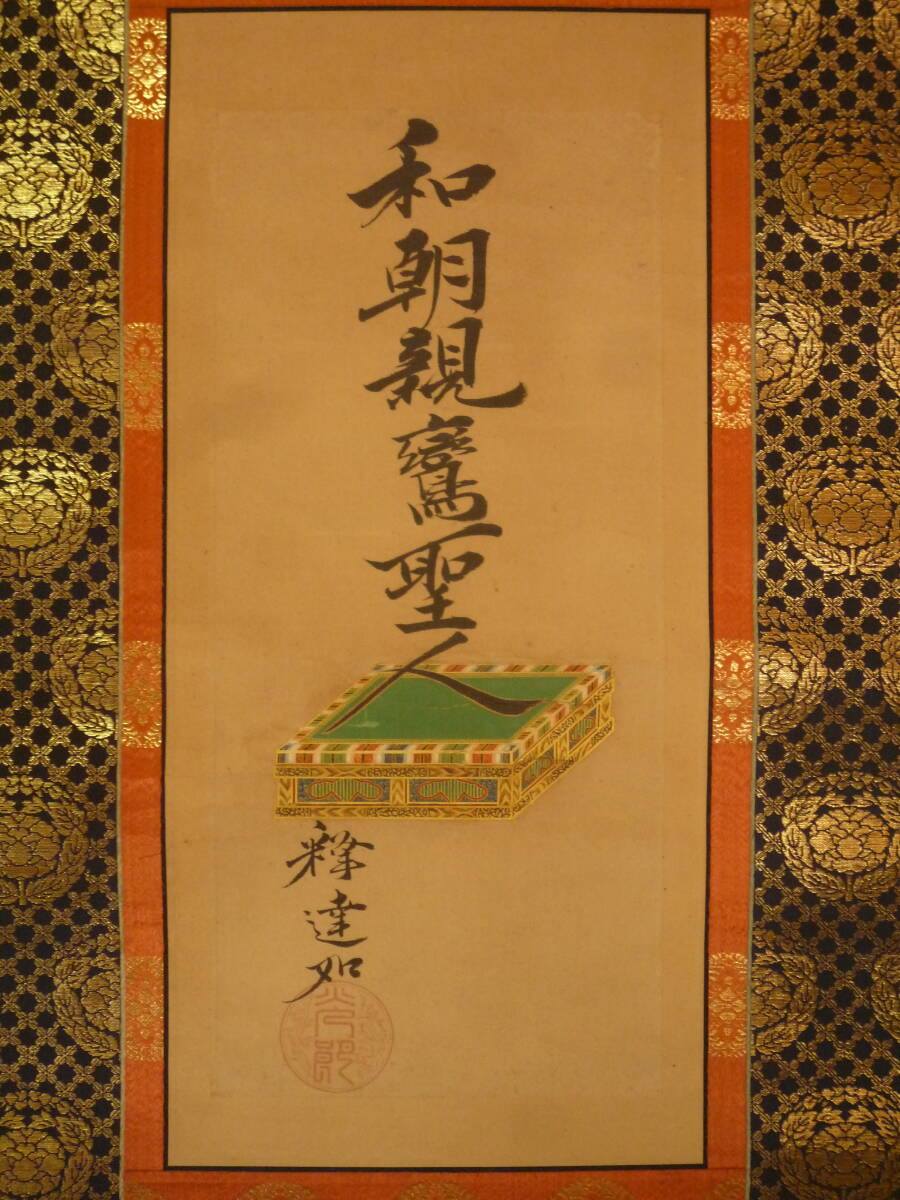 和朝親鸞聖人
釋達如